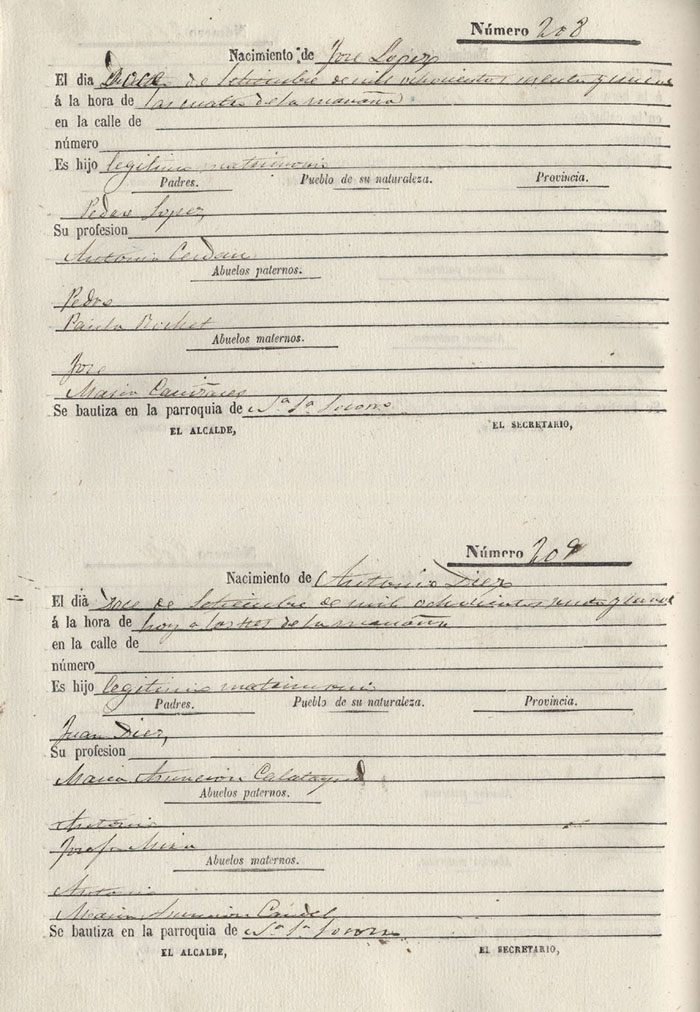 Número 208
Nacimiento de Jose Lopez
El dia doce de Setiembre de mil ochocientos y nueve
á la hora de las cuatro de la mañana
en la calle de
número
Es hijo legitimo matrimonio
Padres. Pueblo de su naturaleza. Provincia.
Pedro Lopez
Su profesion
Antonia Cerdan
Abuelos paternos.
Pedro
Paula
Abuelos maternos.
Jose
Maria Cañizares
Se bautiza en la parroquia de Na. Sa. Socorro
EL ALCALDE, EL SECRETARIO,
Número 209
Nacimiento de Antonio Diez
El dia Doce de Setiembre de mil ochocientos y nueve
á la hora de hoy a las tres de la mañana
en la calle de
número
Es hijo legitimo matrimonio
Padres. Pueblo de su naturaleza. Provincia.
Juan Diez,
Su profesion
Maria Asuncion Calatayud
Abuelos paternos.
Antonio
Josefa Mira
Abuelos maternos.
Antonio
Maria Asuncion Candel
Se bautiza en la parroquia de Na. Sa. Socorro
EL ALCALDE, EL SECRETARIO,